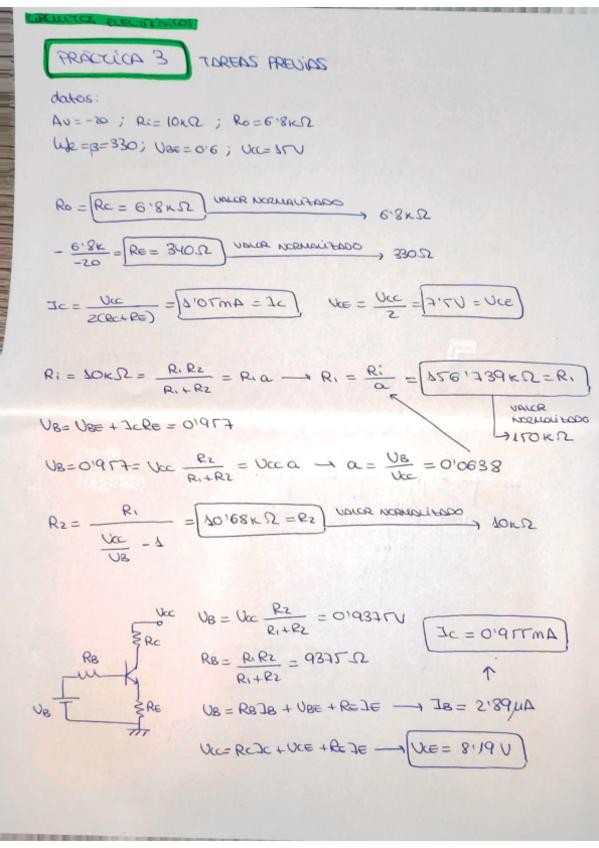 CIRCUITOS ELECTRÓNICOS
PRÁCTICA 3 TAREAS PREVIAS
datos:
Av = -20 ; Ri = 10kΩ ; Ro = 6'8kΩ
hfe = β = 330 ; VBE = 0'6 ; Vcc = 15V
Ro = Rc = 6'8kΩ VALOR NORMALIZADO → 6'8kΩ
- 6'8k / -20 = RE = 340Ω VALOR NORMALIZADO → 330Ω
Ic = Vcc / 2(Rc+RE) = 1'05mA = Ic VCE = Vcc / 2 = 7'5V = VCE
Ri = 10kΩ = R1 R2 / R1+R2 = R1 a → R1 = Ri / a = 156'739kΩ = R1
VALOR
NORMALIZADO
→ 150kΩ
VB = VBE + IcRE = 0'957
VB = 0'957 = Vcc R2 / R1+R2 = Vcc a → a = VB / Vcc = 0'0638
R2 = R1 / Vcc / VB - 1 = 10'68kΩ = R2 VALOR NORMALIZADO → 10kΩ
Vcc
Rc
RB
VB
RE
VB = Vcc R2 / R1+R2 = 0'9375V
Ic = 0'955mA
RB = R1R2 / R1+R2 = 9375Ω
VB = RBIB + VBE + REIE → IB = 2'89μA
Vcc = RcIc + VCE + REIE → VCE = 8'19V